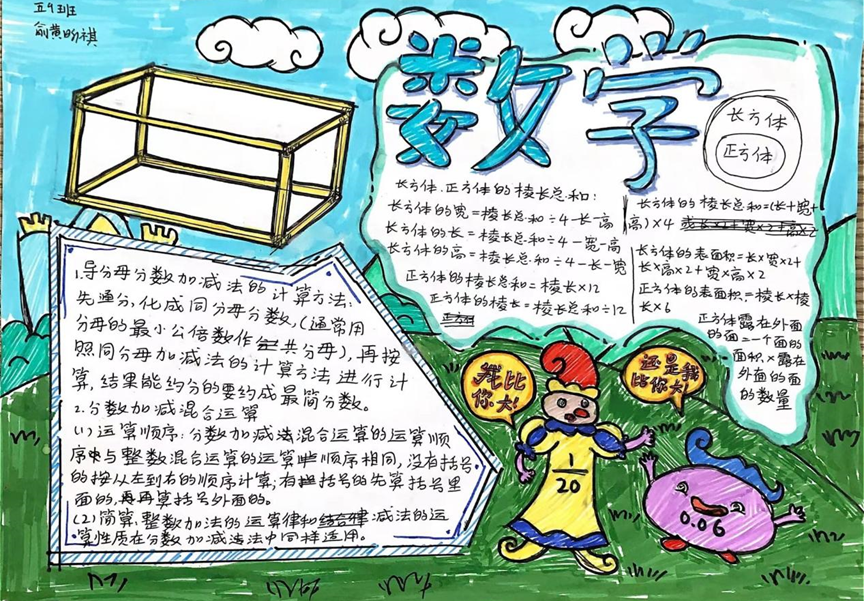 五4班
俞黄昤祺
数学
长方体
正方体
长方体、正方体的棱长总和:
长方体的宽=棱长总和÷4-长-高
长方体的长=棱长总和÷4-宽-高
长方体的高=棱长总和÷4-长-宽
正方体的棱长总和=棱长×12
正方体的棱长=棱长总和÷12
长方体的棱长总和=(长+宽+
高)×4
长方体的表面积=长×宽×2+
长×高×2+宽×高×2
正方体的表面积=棱长×棱
长×6
正方体露在外面
的面=一个面的
面积×露在
外面的面
的数量
1.导分母分数加减法的计算方法:
先通分,化成同分母分数,(通常用
分母的最小公倍数作公共分母),再按
照同分母加减法的计算方法进行计
算,结果能约分的要约成最简分数。
2.分数加减混合运算
(1)运算顺序:分数加减法混合运算的运算顺
序与整数混合运算的运算顺序相同,没有括号
的按从左到右的顺序计算;有括号的先算括号里
面的,再算括号外面的。
(2)简算、整数加法的运算律和减法的运
算性质在分数加减法中同样适用。
我比
你大!
还是我
比你大!
1
20
0.06